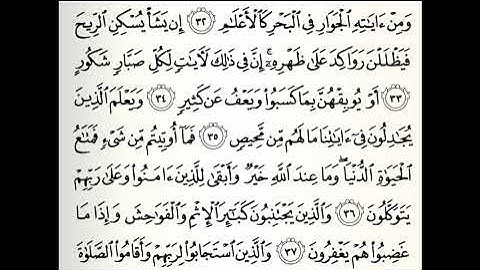 وَمِنْ ءَايَٰتِهِ ٱلْجَوَارِ فِى ٱلْبَحْرِ كَٱلْأَعْلَٰمِ ٣٢ إِن يَشَأْ يُسْكِنِ ٱلرِّيحَ
فَيَظْلَلْنَ رَوَاكِدَ عَلَىٰ ظَهْرِهِۦٓ إِنَّ فِى ذَٰلِكَ لَءَايَٰتٍ لِّكُلِّ صَبَّارٍ شَكُورٍ
٣٣ أَوْ يُوبِقْهُنَّ بِمَا كَسَبُوا۟ وَيَعْفُ عَن كَثِيرٍ ٣٤ وَيَعْلَمَ ٱلَّذِينَ
يُجَٰدِلُونَ فِىٓ ءَايَٰتِنَا مَا لَهُم مِّن مَّحِيصٍ ٣٥ فَمَآ أُوتِيتُم مِّن شَىْءٍ فَمَتَٰعُ
ٱلْحَيَوٰةِ ٱلدُّنْيَا ۖ وَمَا عِندَ ٱللَّهِ خَيْرٌ وَأَبْقَىٰ لِلَّذِينَ ءَامَنُوا۟ وَعَلَىٰ رَبِّهِمْ
يَتَوَكَّلُونَ ٣٦ وَٱلَّذِينَ يَجْتَنِبُونَ كَبَٰٓئِرَ ٱلْإِثْمِ وَٱلْفَوَٰحِشَ وَإِذَا مَا
غَضِبُوا۟ هُمْ يَغْفِرُونَ ٣٧ وَٱلَّذِينَ ٱسْتَجَابُوا۟ لِرَبِّهِمْ وَأَقَامُوا۟ ٱلصَّلَوٰةَ